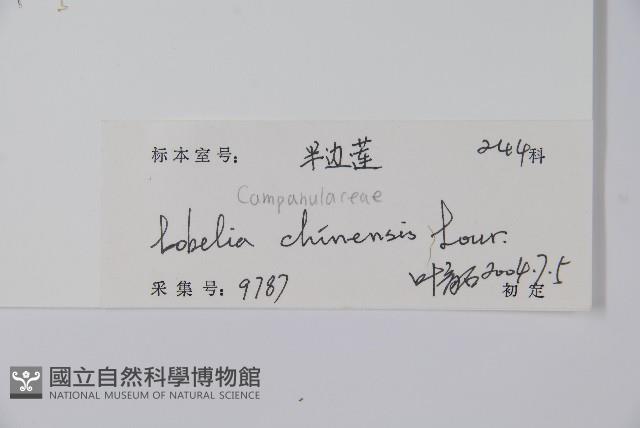 标本室号: 半边莲 244科
Campanulareae
Lobelia chinensis Lour.
采集号: 9787 叶 2004.7.5
初定
國立自然科學博物館
NATIONAL MUSEUM OF NATURAL SCIENCE